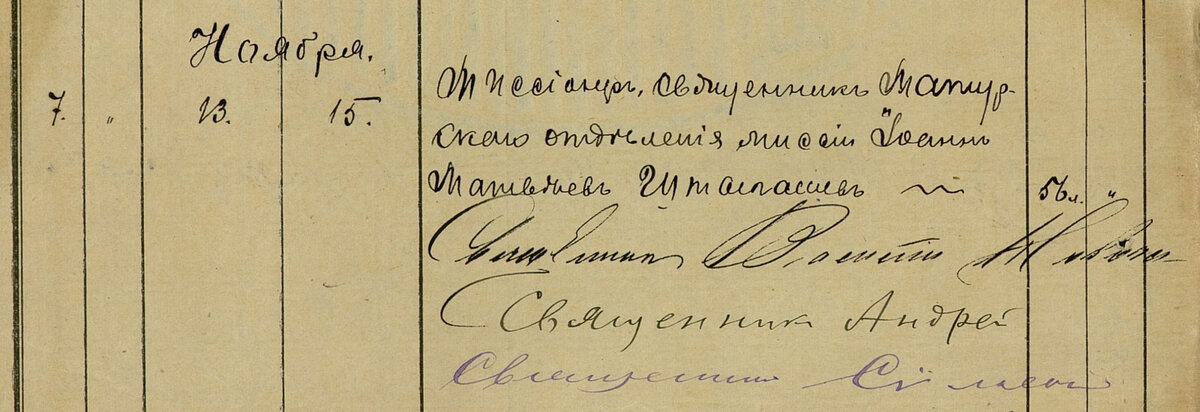 Ноября.
7. " 13. 15. Миссіонеръ, священникъ Матур-
скаго отдѣленія миссіи Іоаннъ
Матвѣевъ Штыгашевъ 56 л. "
Священник
Священник Андрей
Священник